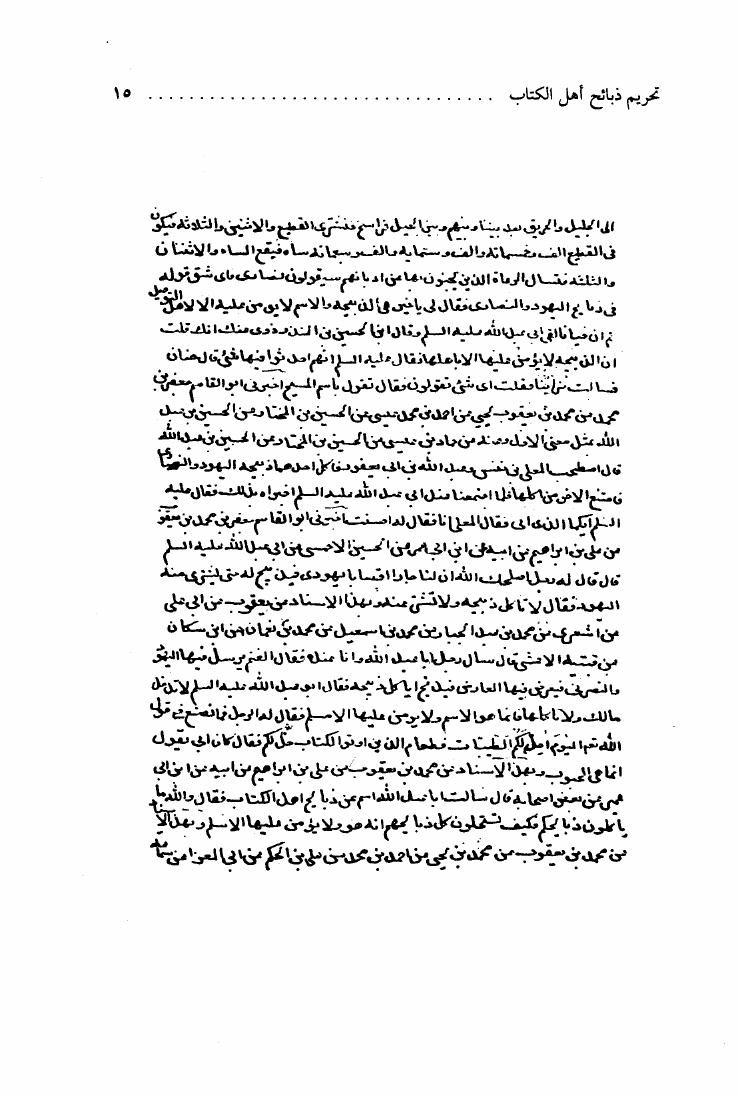 تحريم ذبائح أهل الكتاب ................................. ١٥
الى الجبل والطريق بعيد بيننا وبينهم وبين الجبل فراسخ فنشترى القطيع والاثنين والثلاثه فيكون
فى القطيع الف وخمسمائه والف وستمايه والف وسبعمائه شاه فيقع الشاه والاثنتان
والثلثه فنسال الرعاة الذين يجيئون بها عن اديانهم فيقولون نصارى فاى شئ قولك
فى ذبايح اليهود والنصارى فقال لى ياحسين هى الذبيحه والاسم لا يومن عليه الا اهل التوحيد
ثم ان حنانا لقى ابى عبد الله عليه السلم وقال ان الحسين بن المنذر روى عنك انك قلت
ان الذبيحه لا يؤمن عليها الا اهلها فقال عليه السلم انهم احدثوا فيها شئ قال حنان
فسالت نصرانيا فقلت اى شئ تقولون فقال نقول باسم المسيح اخبرنى ابو القاسم جعفر بن
محمد عن محمد بن يعقوب عن محمد بن يحيى عن احمد بن محمد بن عيسى
الله مثل معنى الاول
قال اصطحب المعلى بن خنيس وعبد الله بن ابى يعفور فاكل احدهما ذبيحه اليهود والنصارى
فامتنع الاخر من اكلها فلما اجتمعنا عند ابى عبد الله عليه السلم اخبراه بذلك فقال عليه
السلم ايكما الذى ابى فقال المعلى انا فقال له احسنت اخبرنى ابو القاسم جعفر بن محمد بن يعقوب
عن على بن ابراهيم عن ابيه عن ابن ابى عمير عن الحسين الاحمسى عن ابى عبد الله عليه السلم
قال قال له رجل اصلحك الله ان لنا جارا قصابا يهودى فيذبح له حتى يشترى منه
اليهود فقال لا تاكل ذبيحه ولا تشتر منه وبهذا الاسناد عن يعقوب عن ابى على
الاشعرى عن محمد بن عبد الجبار عن محمد بن اسمعيل عن محمد بن نعمان عن ابن مسكان
عن قتيبه الاعشى قال سال رجل ابا عبد الله وانا عنده فقال الغنم يرسل فيها اليهودى
والنصرانى فيعرض فيها العارض فيذبح اياكل ذبيحه فقال ابو عبد الله عليه السلم لا تدخل
مالك ولا تاكلها فانما هو الاسم ولا يومن عليها الا مسلم فقال له الرجل فما نصنع فى قول
الله تعم اليوم احل لكم الطيبات وطعام الذين اوتوا الكتاب حل لكم فقال كان ابى يقول
انما هى الحبوب وبهذا الاسناد عن محمد بن يعقوب عن على بن ابراهيم عن ابيه عن ابن ابى
عمير عن بعض اصحابه قال سالت ابا عبد الله ام عن ذبايح اهل الكتاب فقال والله ما
ياكلون ذبايحكم فكيف تستحلون اكل ذبايحهم انه هو ولا يؤمن عليها الا مسلم وبهذا الا
عن محمد بن يعقوب عن محمد بن يحيى عن احمد بن محمد عن على بن الحكم عن ابى المعزا عن سماعه